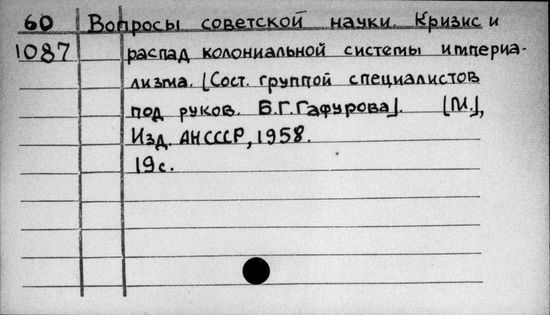 60 Вопросы советской науки. Кризис и
1087 распад колониальной системы империа-
лизма. [Сост. группой специалистов
под руков. Б.Г.Гафурова]. [М.],
Изд. АН СССР, 1958.
19 с.